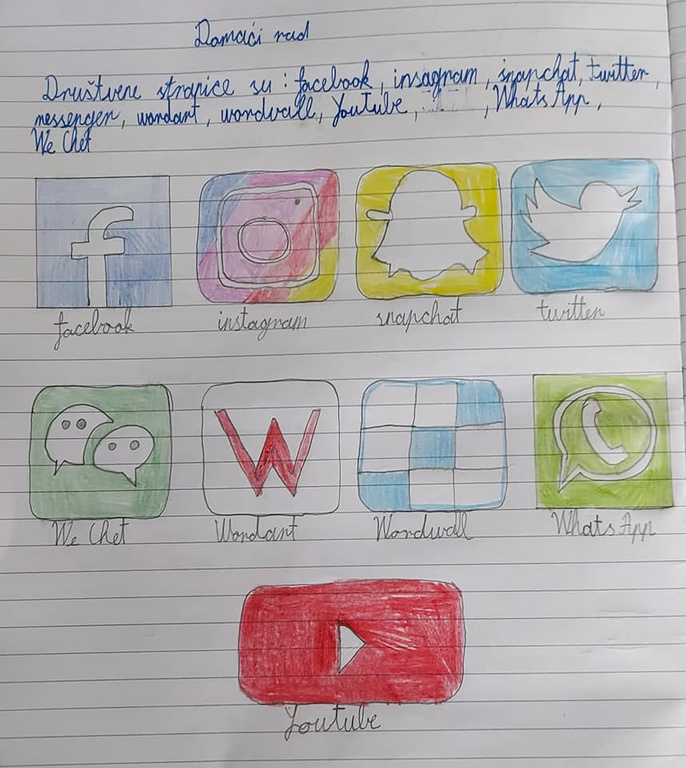 Domaći rad
Društvene stranice su : facebook, insagram, snapchat, twitter,
messenger, wordart, wordwall, Youtube, , WhatsApp,
We Chet
facebook instagram snapchat twitter
We Chet Wordart Wordwall WhatsApp
Youtube